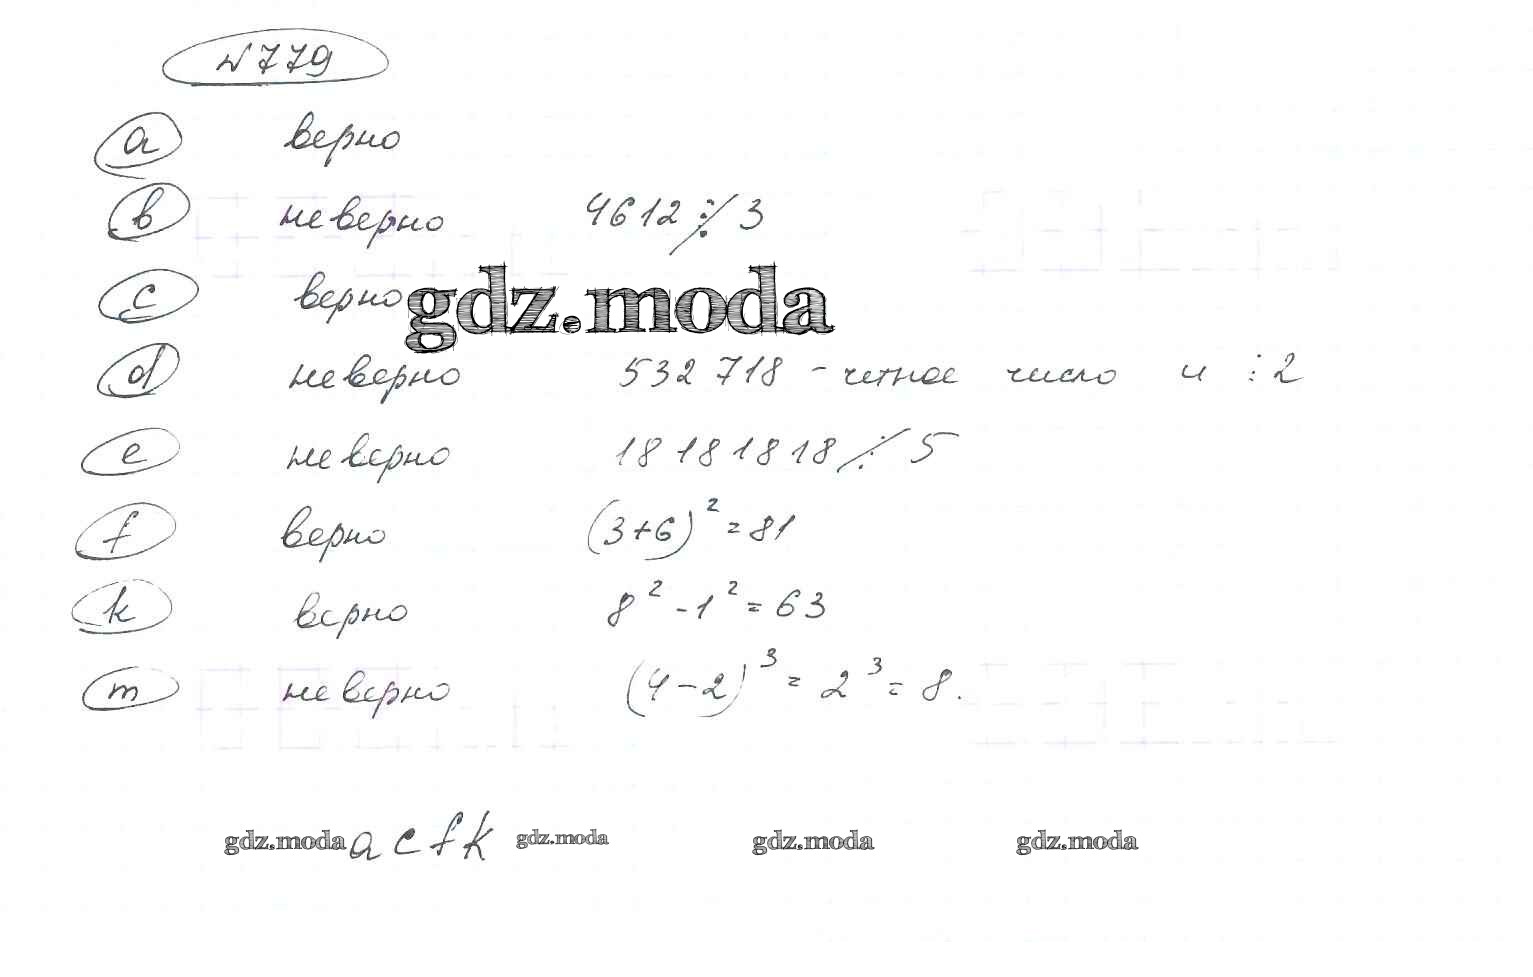 №779
a верно
b неверно 4612 ⋮̸ 3
c верно gdz.moda
d неверно 532 718 - четное число и ⋮ 2
e неверно 18 18 18 18 ⋮̸ 5
f верно (3+6)² = 81
k верно 8² - 1² = 63
m неверно (4-2)³ = 2³ = 8.
gdz.moda a c f k gdz.moda gdz.moda gdz.moda